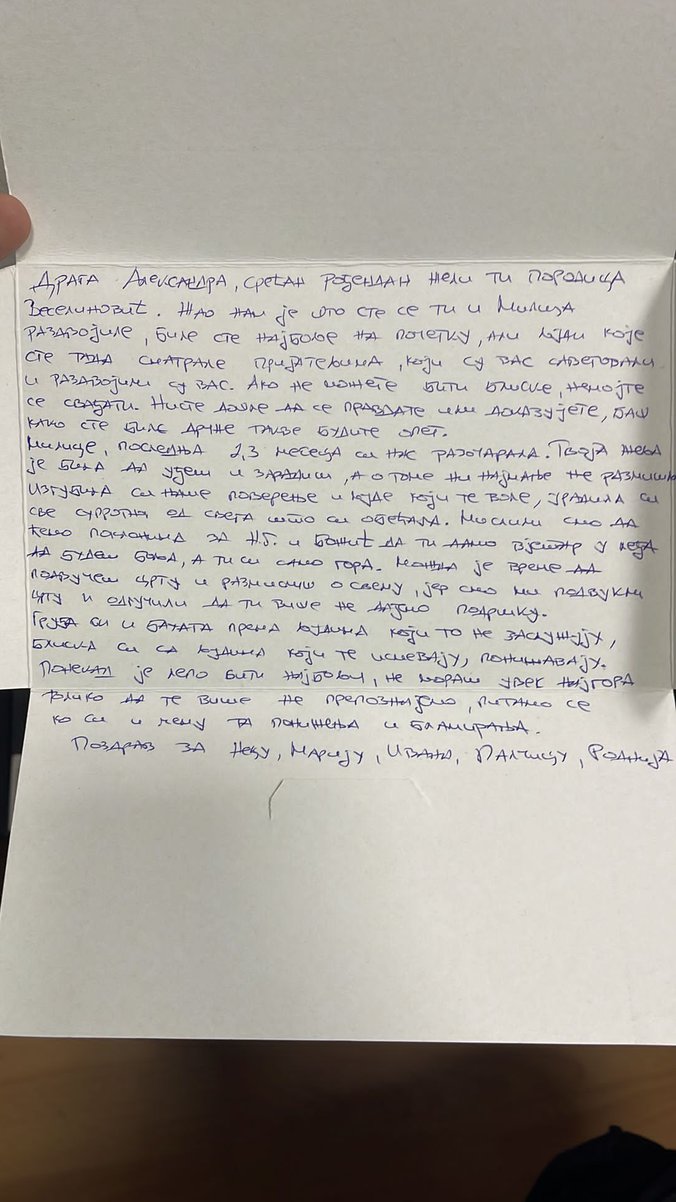 Драга Александра, срећан рођендан жели ти породица
Веселиновић. Жао нам је што сте се ти и Милица
раздвојиле, биле сте најбоље на почетку, али људи које
сте тада сматрале пријатељима, који су вас саветовали
и раздвојили су вас. Ако не можете бити блиске, немојте
се свађати. Нисте дошле да се правдате или доказујете, баш
како сте биле дечје такве будите опет.
Милице, последња 2,3 месеца си нас разочарала. Твоја жеља
је била да уђеш и зарадиш, а о томе ни најмање не размишљ
Изгубила си наше поверење и људе који те воле, урадила си
све супротно од свега што си обећала. Мислили смо да
ћемо поклонима за Н.Г. и Божић да ти дамо ветар у леђа
да будеш боља, а ти си само гора. Можда је време да
подвучеш црту и размислиш о свему, јер смо ми подвукли
црту и одлучили да ти више не дајемо подршку.
Груба си и бахата према људима који то не заслужују,
блиска си са људима који те исмевају, понижавају.
Понекад је лепо бити најбољи, не мораш увек најгора
толико да те више не препознајемо, питамо се
ко си и чему та понижења и бламирања.
Поздрав за Нецу, Марију, Ивана, Палчицу,